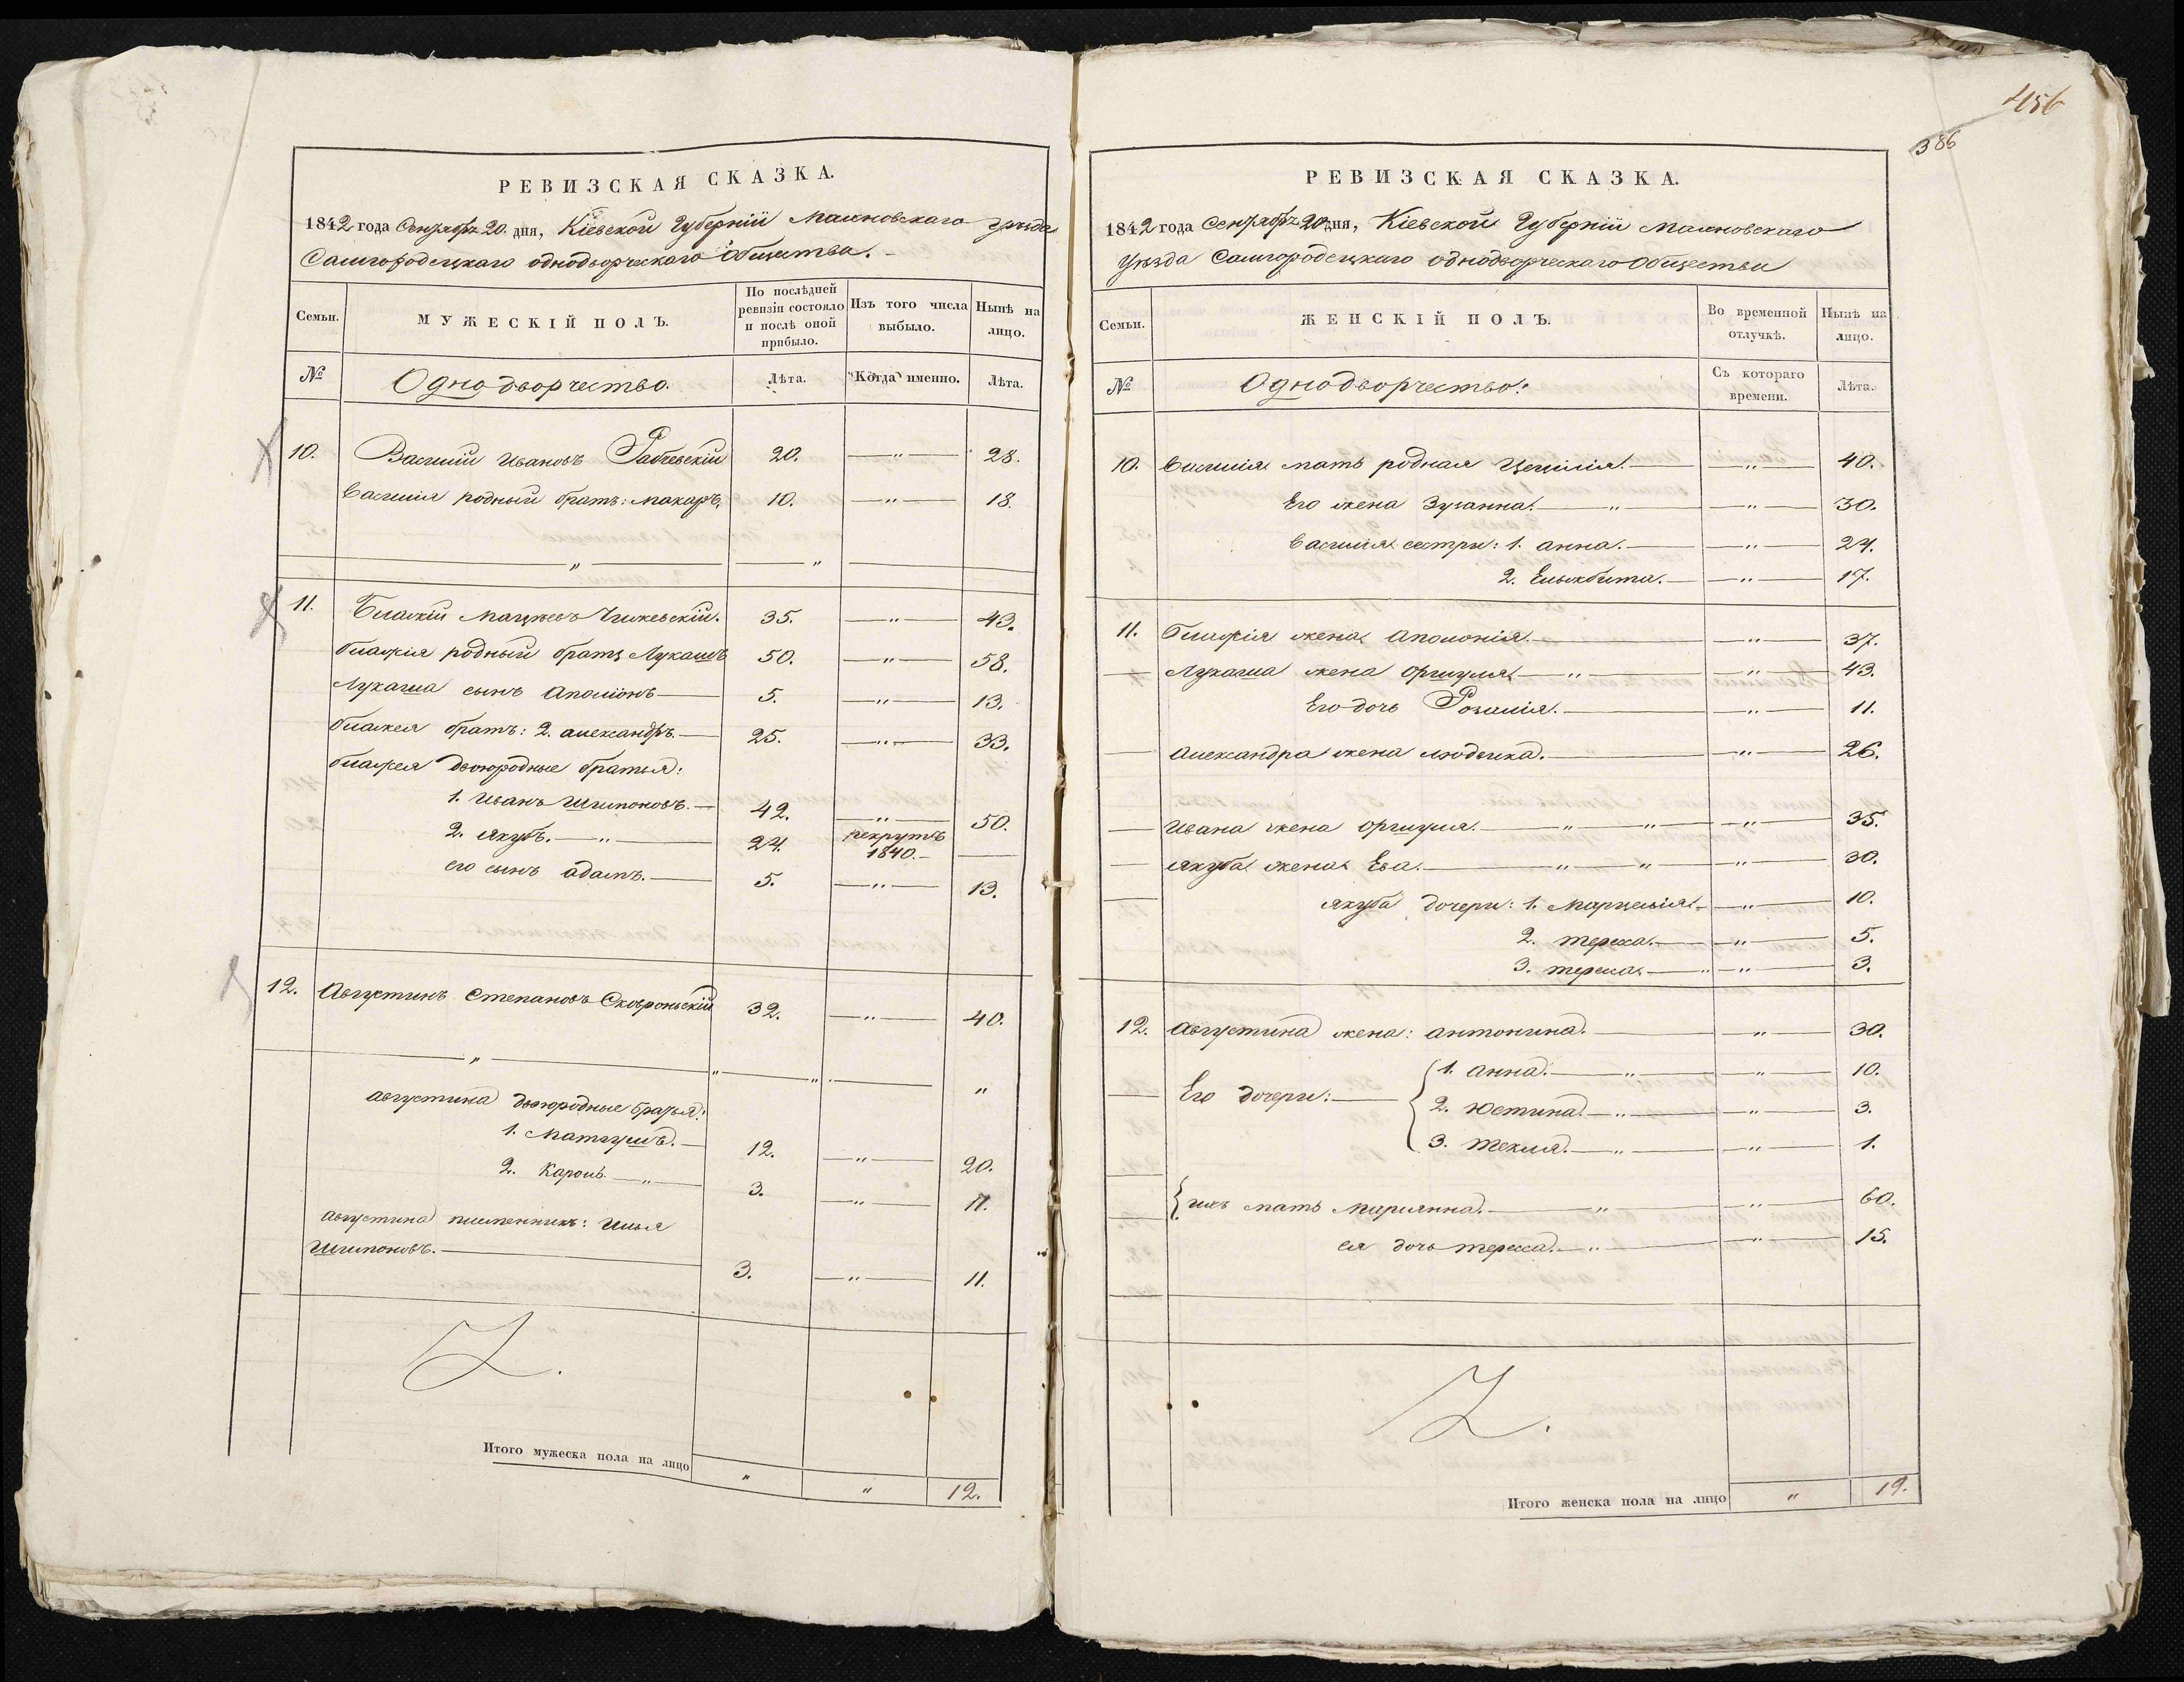 РЕВИЗСКАЯ СКАЗКА.
1842 года Сентября 20. дня, Кіевской Губерніи Махновскаго Уѣзда
Самгородецкаго однодворческаго Общества.
Семьи.
МУЖЕСКІЙ ПОЛЪ.
По послѣдней ревизіи состояло и послѣ оной прибыло.
Изъ того числа выбыло.
Нынѣ на лицо.
№
Однодворчество.
Лѣта.
Когда именно.
Лѣта.
10. Василій Ивановъ 20. —"— 28.
Василія родный братъ: Макаръ. 10. —"— 18.
—"— —"—
11. Блажій Мацѣевъ Чижевскій. 35. —"— 43.
Блажія родный братъ Лукашъ 50. —"— 58.
Лукаша сынъ Аполіонъ — 5. —"— 13.
Блажея братъ: 2. Александръ. — 25. —"— 33.
Блажея двоюродные братья:
1. Иванъ Шимоновъ. — 42. —"— 50.
2. Якубъ. —"— 24. рекрутъ 1840. — —
его сынъ Адамъ. — 5. —"— 13.
12. Августинъ Степановъ Сковроньскій 32. —"— 40.
—"— " —"— "
Августина двоюродные братья:
1. Матеушъ. — 12. —"— 20.
2. Кароль —"— 3. —"— 11.
Августина племенникъ: Илья
Шимоновъ. — 3. —"— 11.
Итого мужеска пола на лицо " " 12.
456
386
РЕВИЗСКАЯ СКАЗКА.
1842 года Сентября 20 дня, Кіевской Губерніи Махновскаго
Уѣзда Самгородецкаго однодворческаго Общества
Семьи.
ЖЕНСКІЙ ПОЛЪ.
Во временной отлучкѣ.
Нынѣ на лицо.
№
Однодворчество.
Съ котораго времени.
Лѣта.
10. Василія мать родная Цецилія. — —"— 40.
Его жена Зузанна. —"— —"— 30.
Василія сестры: 1. Анна. — —"— 24.
2. Ельжбита. — —"— 17.
11. Блажія жена Аполонія. — —"— 37.
— Лукаша жена Оршуля —"— —"— 43.
Его дочь Розалія. — —"— 11.
— Александра жена Людвика. — —"— 26.
— Ивана жена Оршуля. —"—"— —"— 35.
— Якуба жена Ева. —"—"— —"— 30.
— Якуба дочери: 1. Марцелія. — —"— 10.
2. Тереса. — —"— 5.
3. Текля —"— —"— 3.
12. Августина жена: Антонина. — —"— 30.
— Его дочери: — 1. Анна. —"— —"— 10.
2. Юстина. —"— —"— 3.
3. Текля. —"— —"— 1.
ихъ мать Марианна. —"— —"— 60.
ея дочь Тересса. —"— —"— 15.
Итого женска пола на лицо " 19.